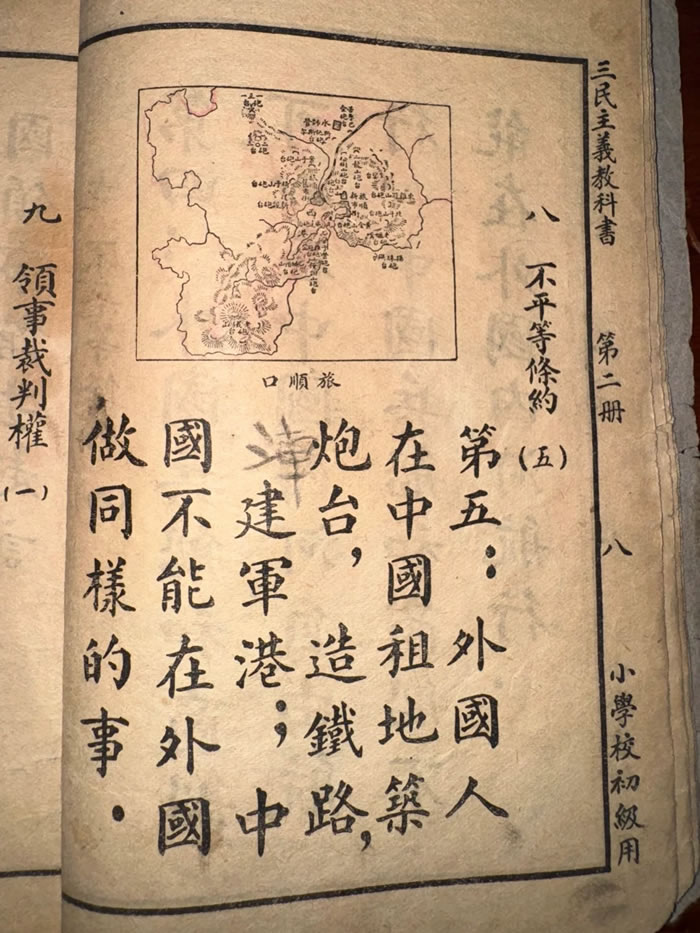 三民主義教科書 第二册 八 小學校初級用
八 不平等條約 (五)
旅順口
第五：外國人
在中國租地築
炮台，造鐵路，
建軍港；中
國不能在外國
做同樣的事．
九 領事裁判權 (一)